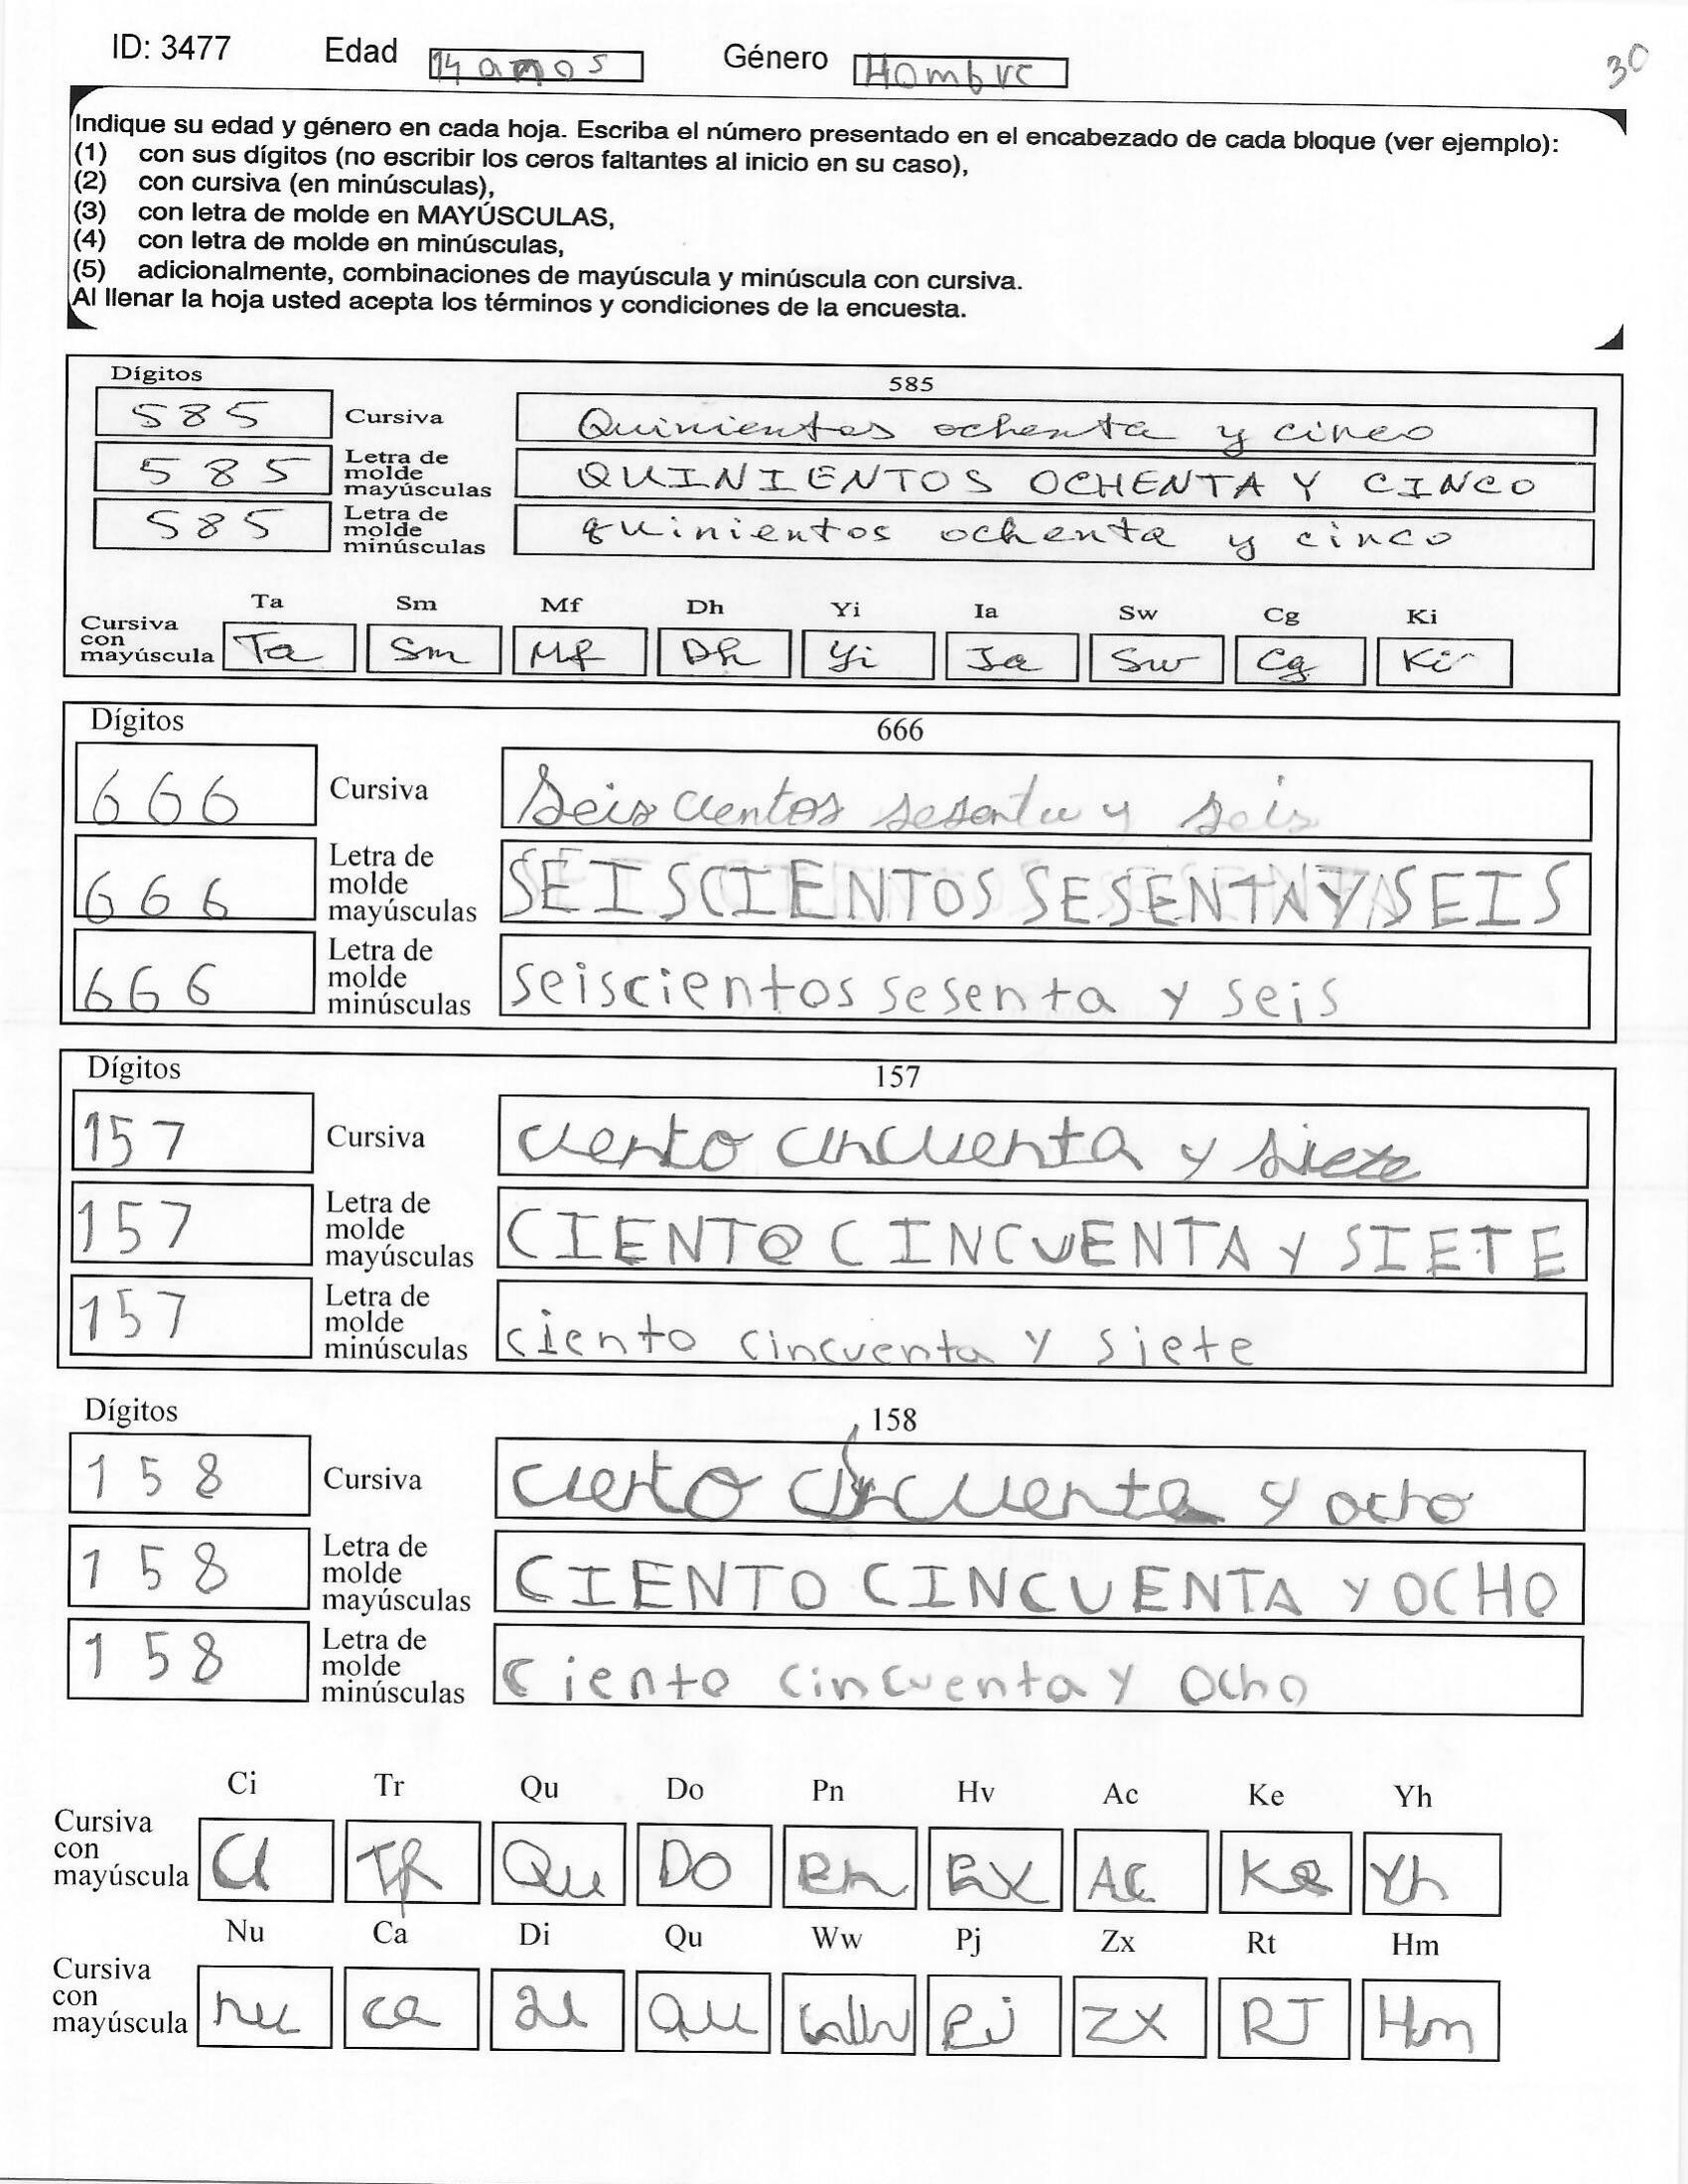 ID: 3477 Edad 14 amos Género Hombre 30
Indique su edad y género en cada hoja. Escriba el número presentado en el encabezado de cada bloque (ver ejemplo):
(1) con sus dígitos (no escribir los ceros faltantes al inicio en su caso),
(2) con cursiva (en minúsculas),
(3) con letra de molde en MAYÚSCULAS,
(4) con letra de molde en minúsculas,
(5) adicionalmente, combinaciones de mayúscula y minúscula con cursiva.
Al llenar la hoja usted acepta los términos y condiciones de la encuesta.
Dígitos 585
585 Cursiva Quinientos ochenta y cinco
585 Letra de molde mayúsculas QUINIENTOS OCHENTA Y CINCO
585 Letra de molde minúsculas quinientos ochenta y cinco
Ta Sm Mf Dh Yi Ia Sw Cg Ki
Cursiva con mayúscula Ta Sm Mf Dh Yi Ia Sw Cg Ki
Dígitos 666
666 Cursiva Seis cientos sesenta y seis
666 Letra de molde mayúsculas SEISCIENTOS SESENTA Y SEIS
666 Letra de molde minúsculas seiscientos sesenta y seis
Dígitos 157
157 Cursiva ciento cincuenta y siete
157 Letra de molde mayúsculas CIENTO CINCUENTA y SIETE
157 Letra de molde minúsculas ciento cincuenta y siete
Dígitos 158
158 Cursiva ciento cincuenta y ocho
158 Letra de molde mayúsculas CIENTO CINCUENTA Y OCHO
158 Letra de molde minúsculas ciento cincuenta y ocho
Ci Tr Qu Do Pn Hv Ac Ke Yh
Cursiva con mayúscula Ci Tr Qu Do Pn Ac Ke Yh
Nu Ca Di Qu Ww Pj Zx Rt Hm
Cursiva con mayúscula nu ca di qu Ww Pj ZX RT Hm